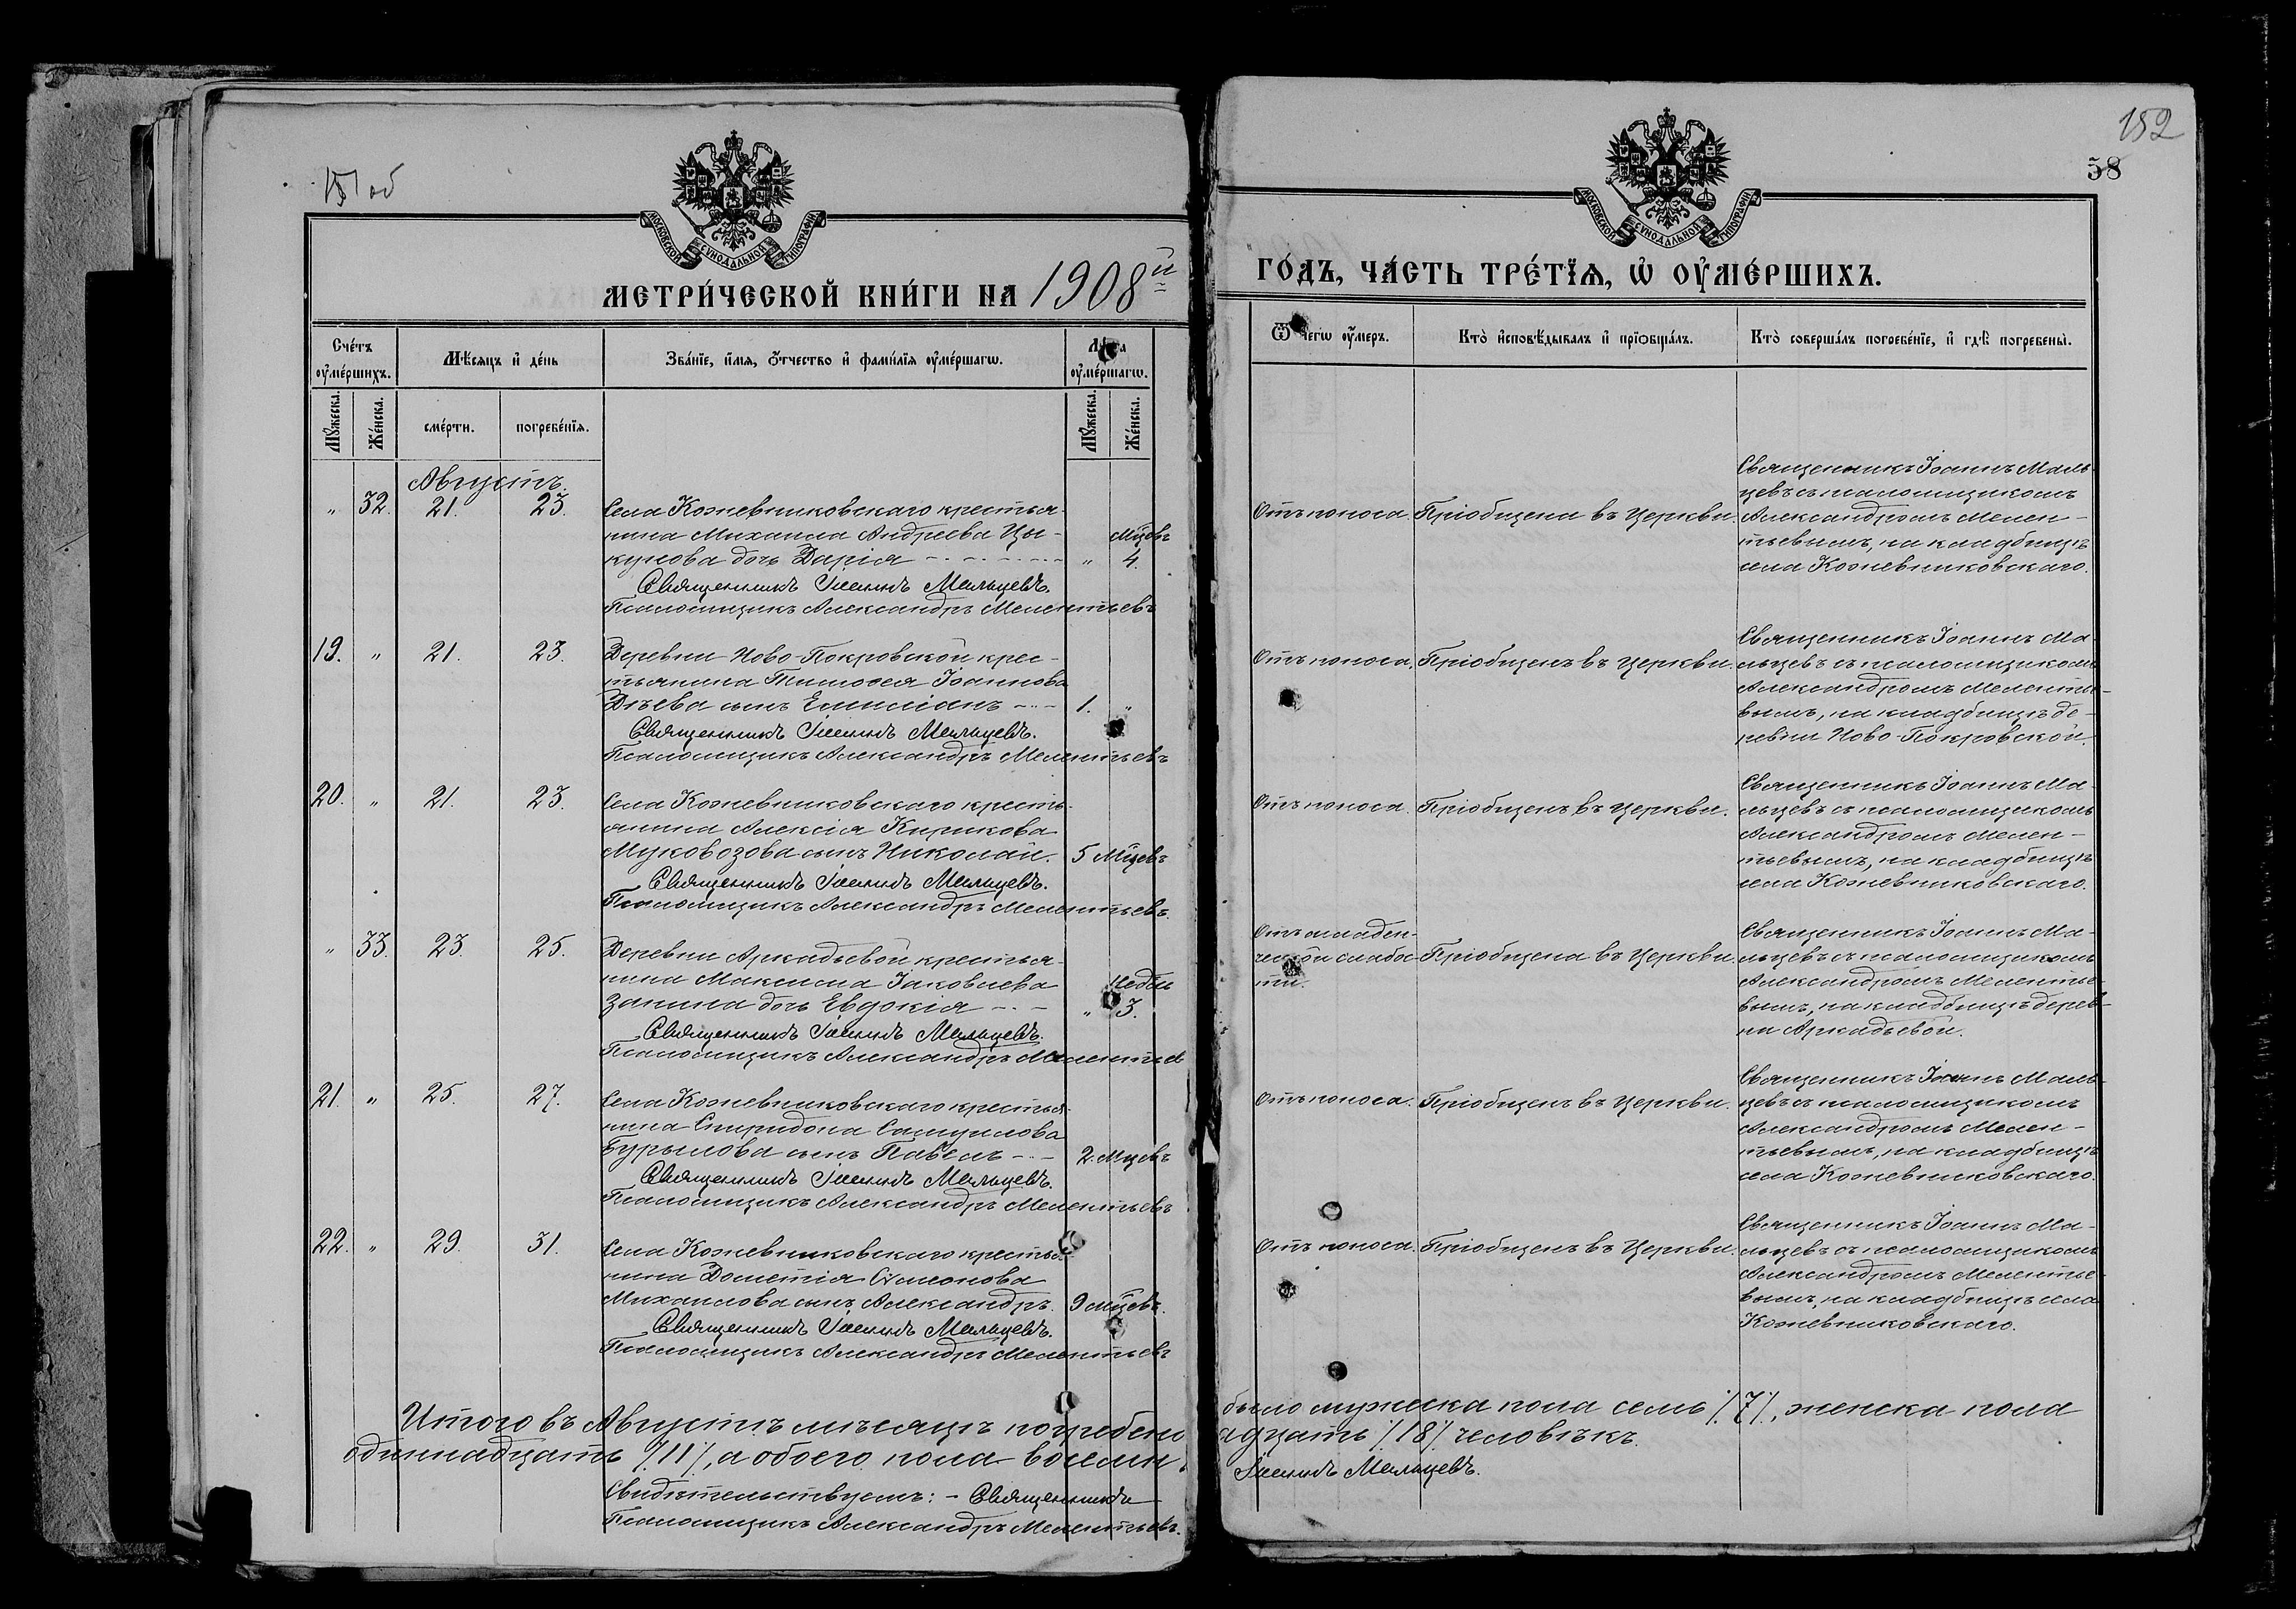 151 об
152
58
МОСКОВСКОЙ СѴНОДАЛЬНОЙ ТИПОГРАФІИ
МОСКОВСКОЙ СѴНОДАЛЬНОЙ ТИПОГРАФІИ
МЕТРИ́ЧЕСКОЙ КНИ́ГИ НА 1908й
ГО́ДЪ, ЧА́СТЬ ТРЕ́ТЇѦ, Ѡ҆ ОУ҆МЕ́РШИХЪ.
Сче́тъ оу҆ме́ршихъ.
Мѣ́сяцъ и҆ де́нь
Зва́нїе, и҆́мя, ѻ҆́тчество и҆ фами́лїя оу҆ме́ршагѡ.
Лѣ́та оу҆ме́ршагѡ.
Ѿ чегѡ̀ оу҆́меръ.
Кто̀ и҆сповѣ́дывалъ и҆ прїѡбща́лъ.
Кто̀ соверша́лъ погребе́нїе, и҆ гдѣ̀ погребены̀.
Мꙋ́жеска.
Же́нска.
сме́рти.
погребе́нїя.
Мꙋ́жеска.
Же́нска.
Августъ.
" 32. 21. 23.
Села Кожевниковскаго крестья-
нина Михаила Андреева Цы-
кунова дочь Дарія " Мцевъ 4.
Священникъ Іоаннъ Мальцевъ.
Псаломщикъ Александръ Мелентьевъ
Отъ поноса. Пріобщена въ Церкви.
Священникъ Іоаннъ Маль-
цевъ съ псаломщикомъ
Александромъ Мелен-
тьевымъ, на кладбищѣ
села Кожевниковскаго.
19. " 21. 23.
Деревни Ново-Покровской крес-
тьянина Тимофея Іоаннова
Дѣева сынъ Емиліанъ 1. "
Священникъ Іоаннъ Мальцевъ.
Псаломщикъ Александръ Мелентьевъ
Отъ поноса. Пріобщенъ въ Церкви.
Священникъ Іоаннъ Ма-
льцевъ съ псаломщикомъ
Александромъ Мелентье-
вымъ, на кладбищѣ де-
ревни Ново-Покровской.
20. " 21. 23.
Села Кожевниковскаго кресть-
янина Алексія Кирикова
Муковозова сынъ Николай. 5 Мцевъ
Священникъ Іоаннъ Мальцевъ.
Псаломщикъ Александръ Мелентьевъ.
Отъ поноса. Пріобщенъ въ Церкви.
Священникъ Іоаннъ Ма-
льцевъ съ псаломщикомъ
Александромъ Мелен-
тьевымъ, на кладбищѣ
села Кожевниковскаго.
" 33. 23. 25.
Деревни Аркадьевой крестья-
нина Максима Іаковлева
Занина дочь Евдокія " Недѣль 3.
Священникъ Іоаннъ Мальцевъ.
Псаломщикъ Александръ Мелентьев
Отъ младен-
ческой слабос-
ти.
Пріобщена въ Церкви.
Священникъ Іоаннъ Ма-
льцевъ съ псаломщикомъ
Александромъ Мелентье-
вымъ, на кладбищѣ дерев-
ни Аркадьевой.
21. " 25. 27.
Села Кожевниковскаго крестья-
нина Спиридона Самуилова
Бурылова сынъ Павелъ 2. Мцевъ
Священникъ Іоаннъ Мальцевъ.
Псаломщикъ Александръ Мелентьевъ
Отъ поноса. Пріобщенъ въ Церкви.
Священникъ Іоаннъ Маль-
цевъ съ псаломщикомъ
Александромъ Мелен-
тьевымъ, на кладбищѣ
села Кожевниковскаго.
22. " 29. 31.
Села Кожевниковскаго крестья-
нина Дометія Симеонова
Михаилова сынъ Александръ. 9 мцевъ.
Священникъ Іоаннъ Мальцевъ.
Псаломщикъ Александръ Мелентьевъ
Отъ поноса. Пріобщенъ въ Церкви.
Священникъ Іоаннъ Ма-
льцевъ съ псаломщикомъ
Александромъ Мелентье-
вымъ, на кладбищѣ села
Кожевниковскаго.
Итого въ Августѣ мѣсяцѣ погребено было мужеска пола семь /7/, женска пола
одиннадцать /11/, а обоего пола восемнадцать /18/ человѣкъ.
Свидѣтельствуемъ: - Священникъ Іоаннъ Мальцевъ.
Псаломщикъ Александръ Мелентьевъ.